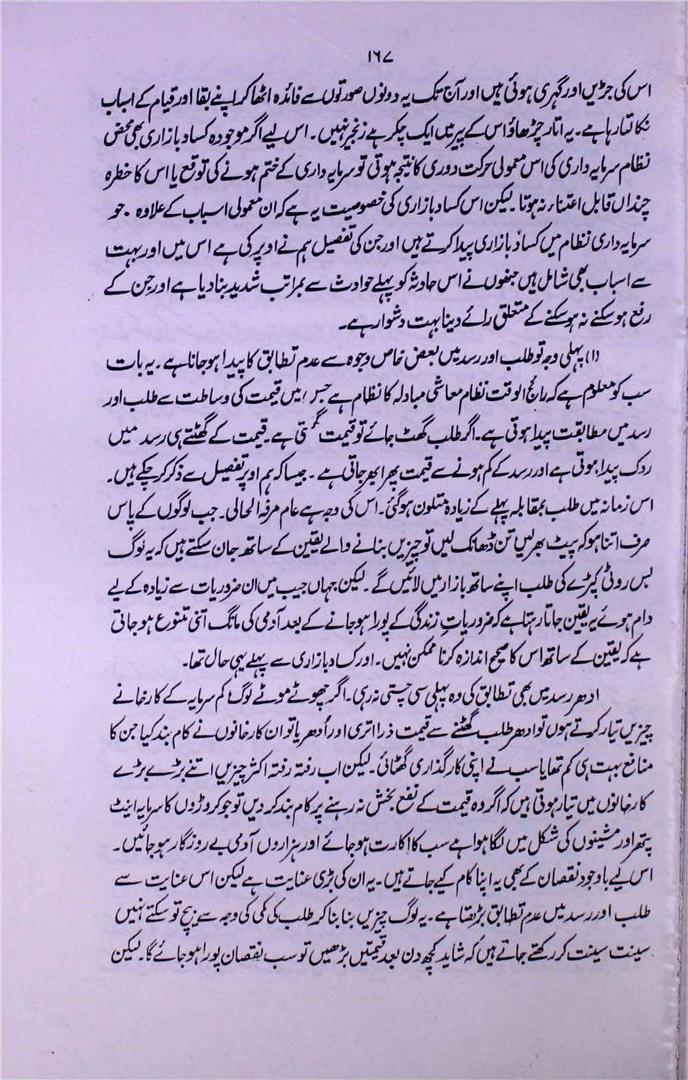 ۱۶۷
اس کی جڑیں اور گہری ہوئی ہیں اور آج تک یہ دونوں صورتوں سے فائدہ اٹھا کر اپنے بقا اور قیام کے اسباب
نکالتا رہا ہے۔ یہ اتار چڑھاؤ اس کے پیر میں ایک چکر ہے زنجیر نہیں۔ اس لیے اگر موجودہ کساد بازاری بھی محض
نظام سرمایہ داری کی اس معمولی حرکت دوری کا نتیجہ ہوتی تو سرمایہ داری کے ختم ہونے کی توقع یا اس کا خطرہ
چنداں قابل اعتناء نہ ہوتا۔ لیکن اس کساد بازاری کی خصوصیت یہ ہے کہ ان معمولی اسباب کے علاوہ جو
سرمایہ داری نظام میں کساد بازاری پیدا کرتے ہیں اور جن کی تفصیل ہم نے اوپر کی ہے اس میں اور بہت
سے اسباب بھی شامل ہیں جنھوں نے اس حادثہ کو پہلے حوادث سے بمراتب شدید بنا دیا ہے اور جن کے
رفع ہو سکنے نہ ہو سکنے کے متعلق رائے دینا بہت دشوار ہے۔
(۱) پہلی وجہ تو طلب اور رسد میں بعض خاص وجوہ سے عدم تطابق کا پیدا ہو جانا ہے۔ یہ بات
سب کو معلوم ہے کہ رائج الوقت نظام معاشی مبادلہ کا نظام ہے جس میں قیمت کی وساطت سے طلب اور
رسد میں مطابقت پیدا ہوتی ہے۔ اگر طلب گھٹ جائے تو قیمت گھٹتی ہے۔ قیمت کے گھٹتے ہی رسد میں
روک پیدا ہوتی ہے اور رسد کے کم ہونے سے قیمت پھر ابھر جاتی ہے۔ جیسا کہ ہم اوپر تفصیل سے ذکر کر چکے ہیں۔
اس زمانہ میں طلب بمقابلہ پہلے کے زیادہ متلون ہو گئی۔ اس کی وجہ ہے عام مرفہ الحالی۔ جب لوگوں کے پاس
صرف اتنا ہو کہ پیٹ بھر لیں تن ڈھانک لیں تو چیزیں بنانے والے یقین کے ساتھ جان سکتے ہیں کہ یہ لوگ
بس روٹی کپڑے کی طلب اپنے ساتھ بازار میں لائیں گے۔ لیکن جہاں جیب میں ان ضروریات سے زیادہ کے لیے
دام ہوئے یہ یقین جاتا رہتا ہے کہ ضروریات زندگی کے پورا ہو جانے کے بعد آدمی کی مانگ اتنی متنوع ہو جاتی
ہے کہ یقین کے ساتھ اس کا صحیح اندازہ کرنا ممکن نہیں۔ اور کساد بازاری سے پہلے یہی حال تھا۔
ادھر رسد میں بھی تطابق کی وہ پہلی سی چستی نہ رہی۔ اگر چھوٹے موٹے لوگ کم سرمایہ کے کارخانے
چیزیں تیار کرتے ہوں تو ادھر طلب گھٹنے سے قیمت ذرا اتری اور اُدھر یا تو ان کارخانوں نے کام بند کیا جن کا
منافع بہت ہی کم تھا یا سب نے اپنی کارگذاری گھٹائی۔ لیکن اب رفتہ رفتہ اکثر چیزیں اتنے بڑے بڑے
کارخانوں میں تیار ہوتی ہیں کہ اگر وہ قیمت کے نفع بخش نہ رہنے پر کام بند کر دیں تو جو کروڑوں کا سرمایہ اینٹ
پتھر اور مشینوں کی شکل میں لگا ہوا ہے سب کا اکارت ہو جائے اور ہزاروں آدمی بے روزگار ہو جائیں۔
اس لیے باوجود نقصان کے بھی یہ اپنا کام کیے جاتے ہیں۔ یہ ان کی بڑی عنایت ہے لیکن اس عنایت سے
طلب اور رسد میں عدم تطابق بڑھتا ہے۔ یہ لوگ چیزیں بنا بنا کر طلب کی کمی کی وجہ سے بیچ تو سکتے نہیں
سینت سینت کر رکھتے جاتے ہیں کہ شاید کچھ دن بعد قیمتیں بڑھیں تو سب نقصان پورا ہو جائے گا۔ لیکن